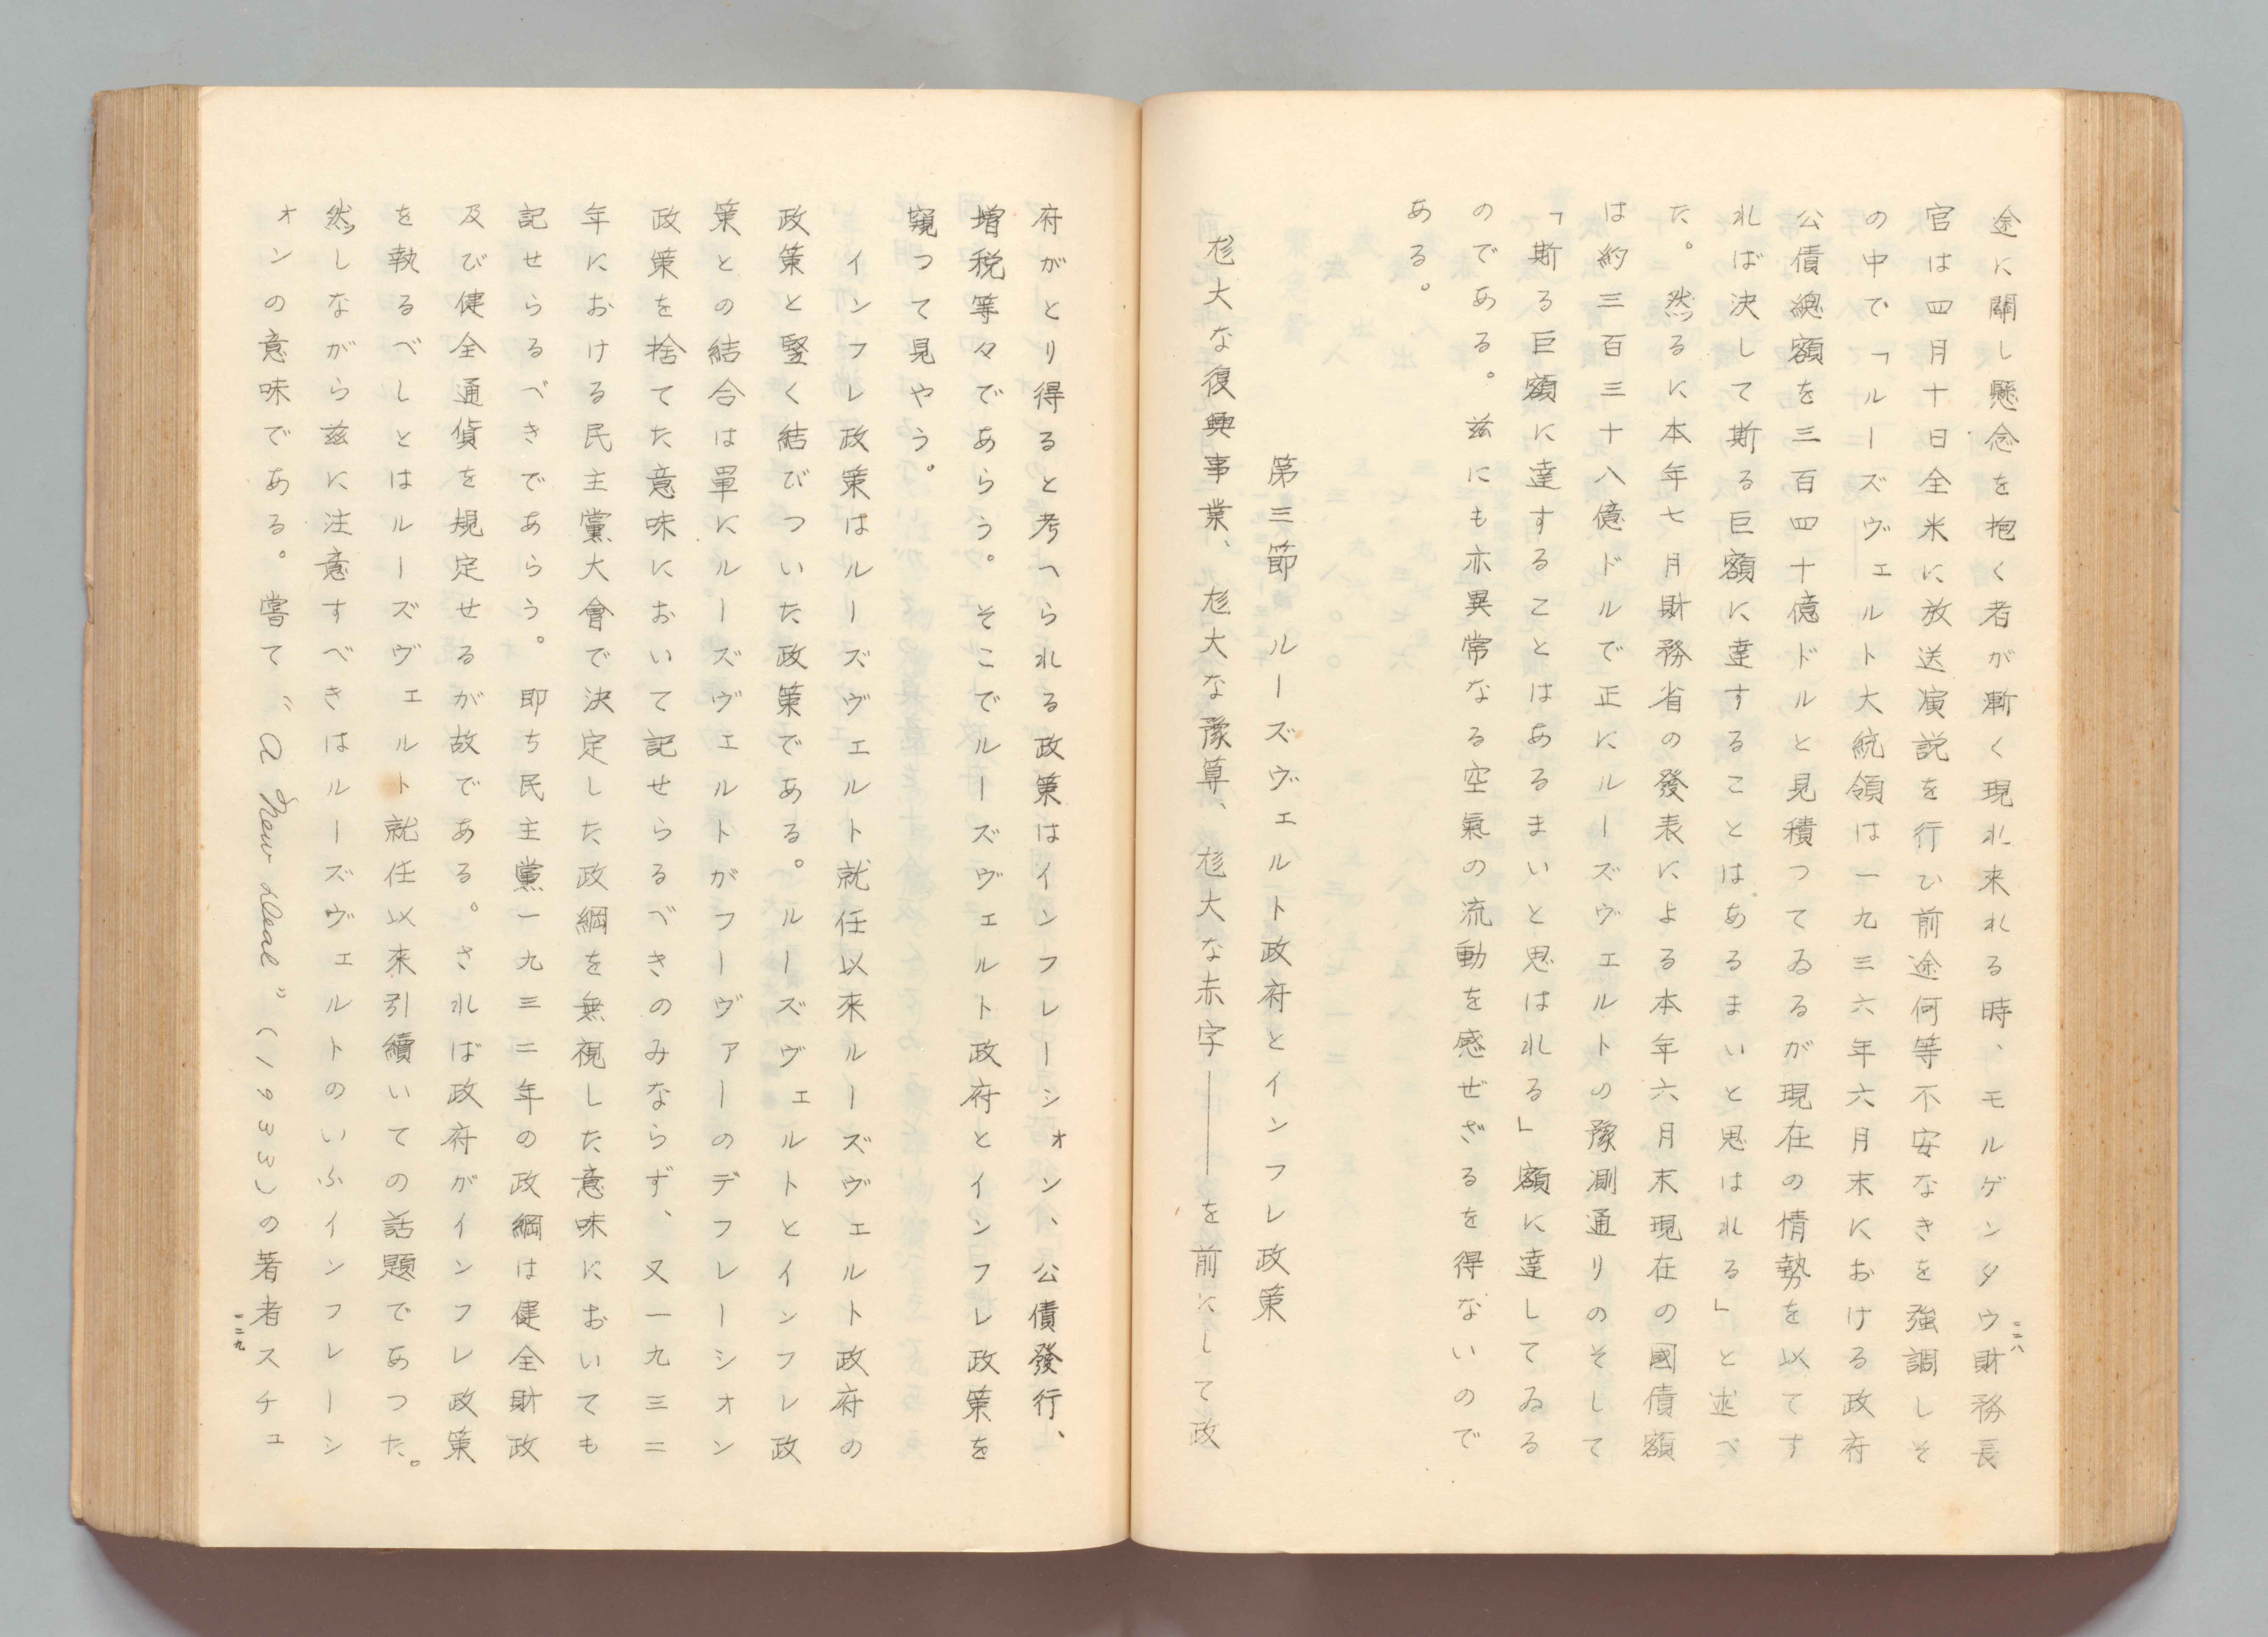 途に關し懸念を抱く者が漸く現れ来れる時、モルゲンタウ財務長
官は四月十日全米に放送演説を行ひ前途何等不安なきを強調しそ
の中で「ルーズヴェルト大統領は一九三六年六月末における政府
公債總額を三百四十億ドルと見積つてゐるが現在の情勢を以てす
れば決して斯る巨額に達することはあるまいと思はれる」と述べ
た。然るに本年七月財務省の發表による本年六月末現在の國債額
は約三百三十八億ドルで正にルーズヴェルトの豫測通りのそして
「斯る巨額に達することはあるまいと思はれる」額に達してゐる
のである。茲にも亦異常なる空氣の流動を感ぜざるを得ないので
ある。
第三節 ルーズヴェルト政府とインフレ政策
尨大な復興事業、尨大な豫算、尨大な赤字――を前にして政
一二八
府がとり得ると考へられる政策はインフレーシォン、公債發行、
増税等々であらう。そこでルーズヴェルト政府とインフレ政策を
窺つて見やう。
インフレ政策はルーズヴェルト就任以來ルーズヴェルト政府の
政策と堅く結びついた政策である。ルーズヴェルトとインフレ政
策との結合は單にルーズヴェルトがフーヴァーのデフレーシオン
政策を捨てた意味において記せらるべきのみならず、又一九三二
年における民主黨大會で決定した政綱を無視した意味においても
記せらるべきであらう。即ち民主黨一九三二年の政綱は健全財政
及び健全通貨を規定せるが故である。されば政府がインフレ政策
を執るべしとはルーズヴェルト就任以來引續いての話題であつた。
然しながら茲に注意すべきはルーズヴェルトのいふインフレーシ
オンの意味である。嘗て〝A New Deal〟(1933)の著者スチュ
一二九